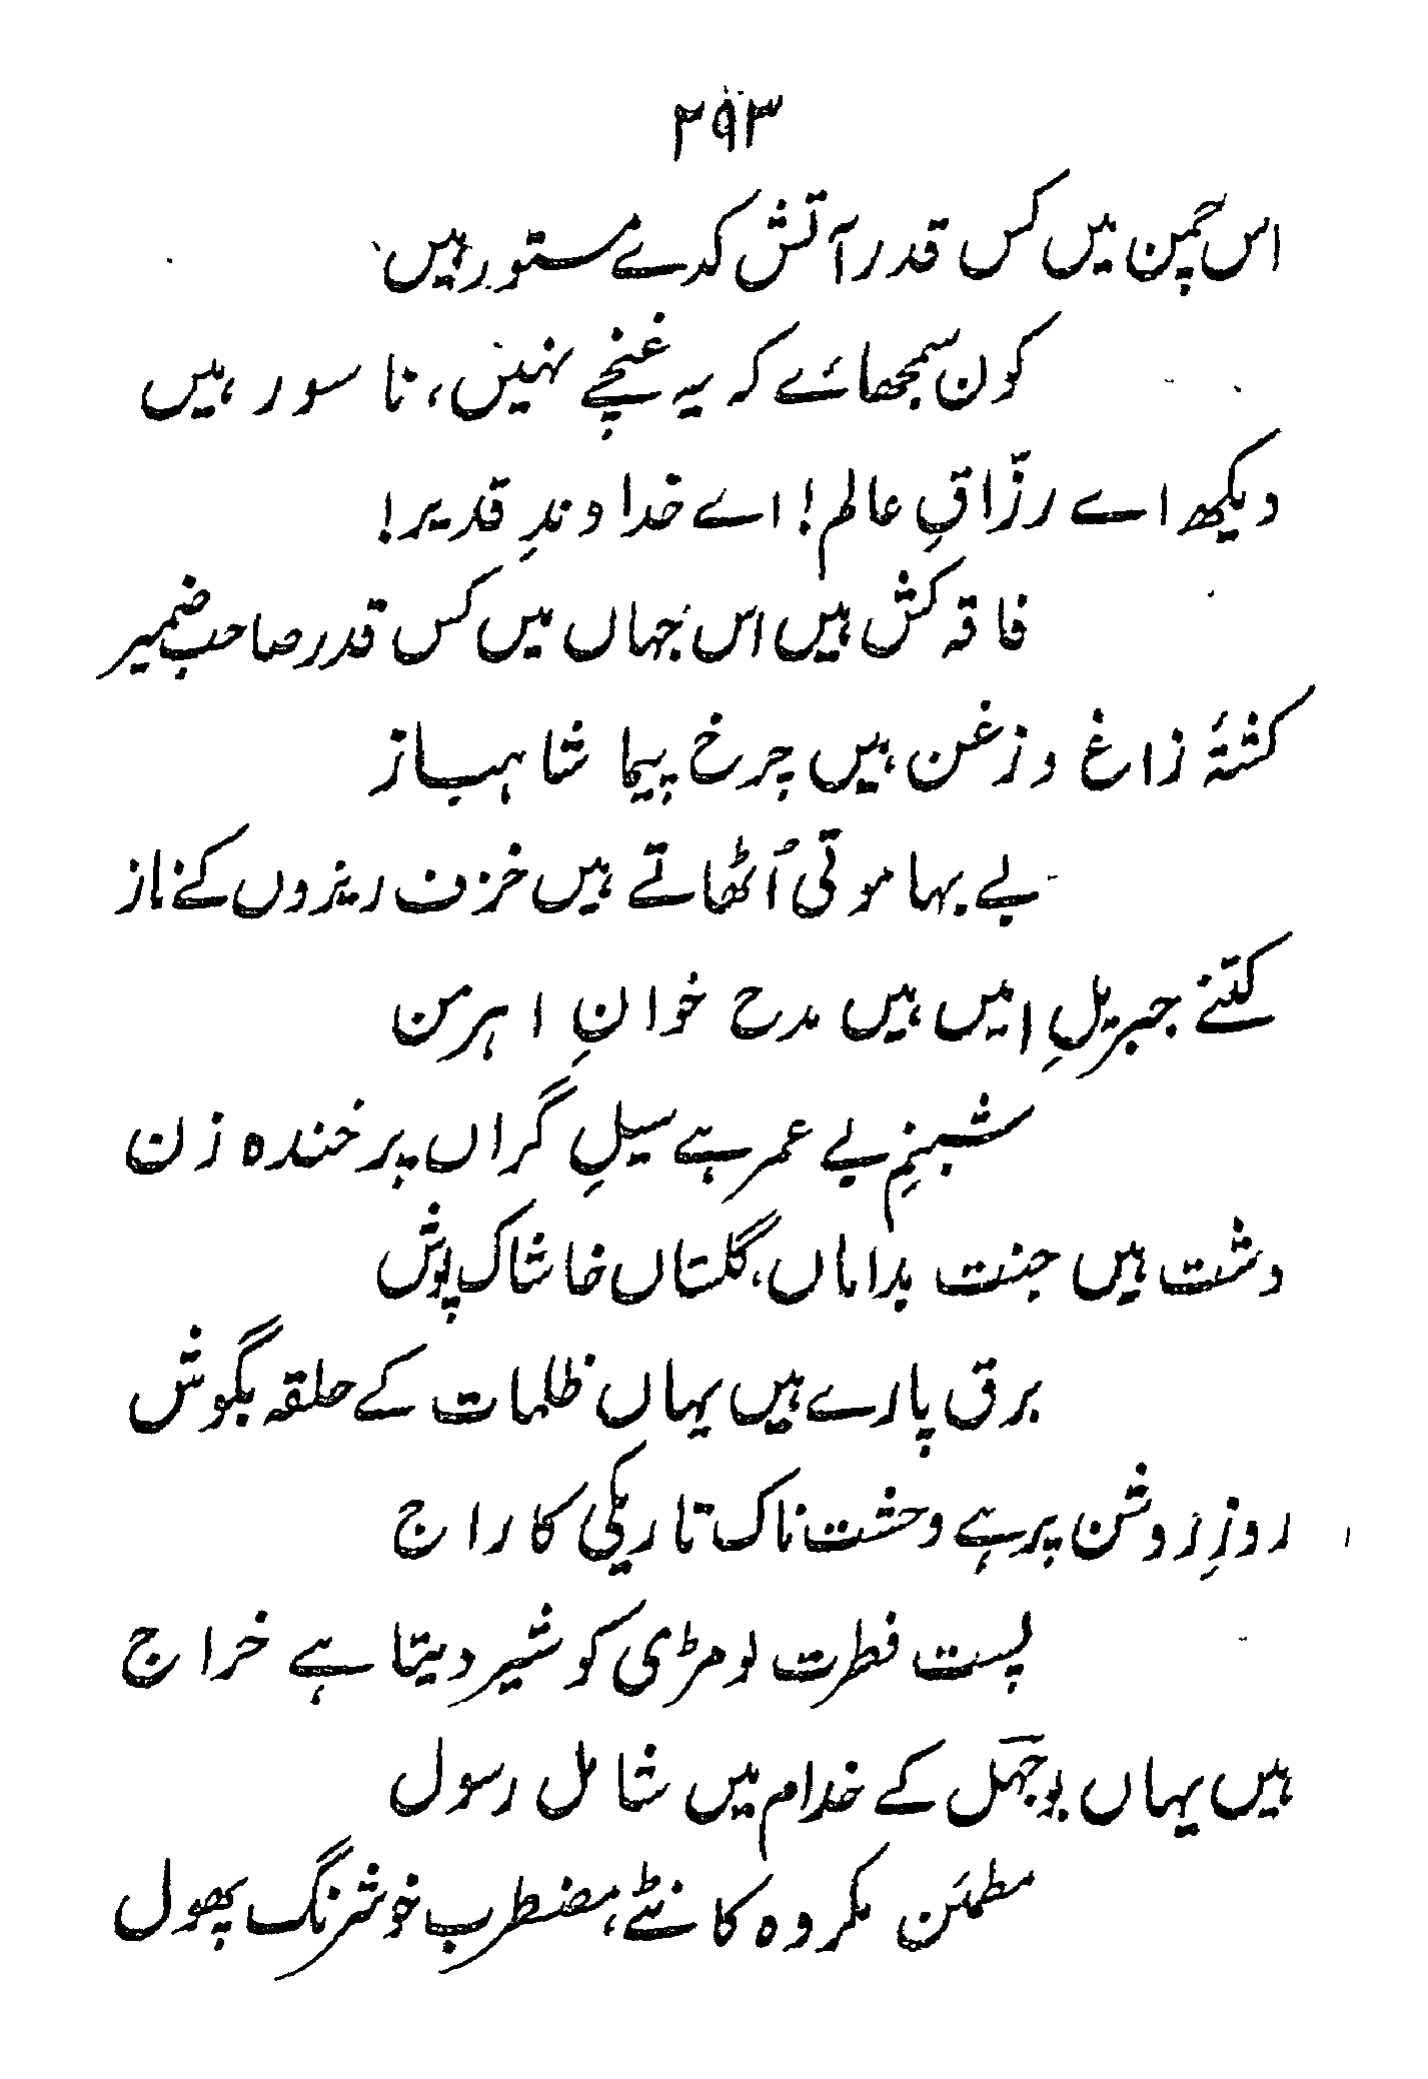 ۲۹۳
اس چمن میں کس قدر آتش کدے مستور ہیں
کون سمجھائے کہ یہ غنچے نہیں، ناسور ہیں
دیکھ اے رزّاقِ عالم! اے خداوندِ قدیر!
فاقہ کش ہیں اس جہاں میں کس قدر صاحب ضمیر
کشتۂ زاغ و زغن ہیں چرخ پیما شاہباز
بے بہا موتی اُٹھاتے ہیں خزف ریزوں کے ناز
کتنے جبریلِ امیں ہیں مدح خوانِ اہرمن
شبنمِ بے عمر ہے سیلِ گراں پر خندہ زن
دشت ہیں جنت بداماں، گلستاں خاشاک پوش
برق پارے ہیں یہاں ظلمات کے حلقہ بگوش
روزِ روشن پر ہے وحشت ناک تاریکی کا راج
پست فطرت لومڑی کو شیر دیتا ہے خراج
ہیں یہاں بوجہل کے خدام میں شامل رسول
مطمئن مکروہ کانٹے، مضطرب خوشرنگ پھول